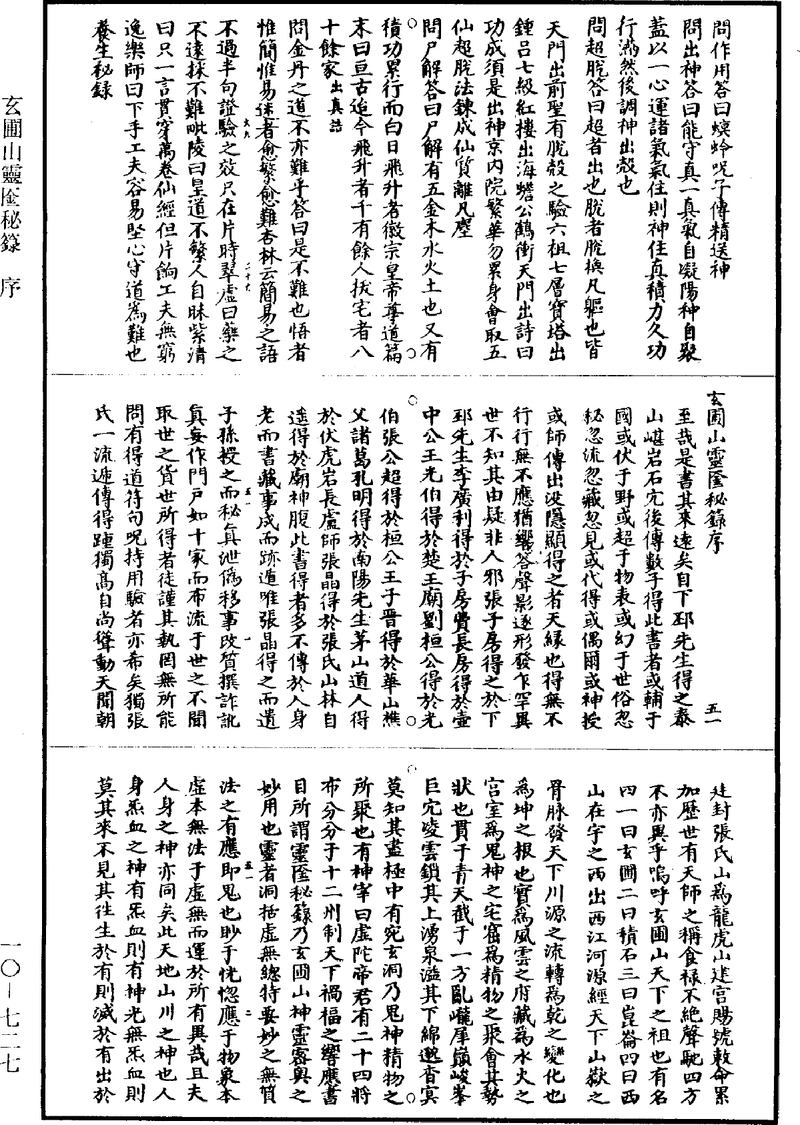 問作用答曰螟蛉咒子傳精送神
問出神答曰能守真一真氣自凝陽神自聚
蓋以一心運諸氣氣住則神住真積力久功
行滿然後調神出殼也
問超脫答曰超者出也脫者脫換凡軀也皆
天門出前聖有脫殼之驗六祖七層寶塔出
鍾呂七級紅樓出海蟾公鶴衝天門出詩曰
功成須是出神京內院繁華勿累身會取五
仙超脫法鍊成仙質離凡塵
問尸解答曰尸解有五金木水火土也又有
積功累行而白日飛升者徽宗皇帝尊道篇
末曰亘古迨今飛升者千有餘人拔宅者八
十餘家出真誥
問金丹之道不亦難乎答曰是不難也悟者
惟簡惟易迷者愈繁愈難杏林云簡易之語
不過半句證驗之效只在片時翠虛曰藥之
不遠採不難毗陵曰皇道不繁人自昧紫清
曰只一言貫穿萬卷仙經但片餉工夫無窮
逸樂師曰下手工夫容易堅心守道為難也
養生秘錄
玄圃山靈匼秘籙序
五一
至哉是書其來遠矣自下邳先生得之泰
山嵁岩石穴後傳數子得此書者或輔于
國或伏于野或超于物表或幻于世俗忽
秘忽流忽藏忽見或代得或偶爾或神授
或師傳出沒隱顯得之者天緣也得無不
行行無不應猶響答聲影逐形發乍罕異
世不知其由疑非人邪張子房得之於下
邳先生李廣利得於子房費長房得於壺
中公王光伯得於楚王廟劉桓公得於光
伯張公超得於桓公王子晉得於華山樵
父諸葛孔明得於南陽先生茅山道人得
於伏虎岩長盧師張晶得於張氏山林自
遥得於廟神腹此書得者多不傳於人身
老而書藏事成而跡遁唯張晶得之而遺
子孫授之而秘真泄偽移事改質撰詐訛
真妄作門戶如十家而布流于世之不聞
取世之貨世所得者徒謹其執罔無所能
問有得道符句咒持用驗者亦希矣獨張
氏一流遞傳得踵獨高自尚聳動天聞朝
廷封張氏山為龍虎山建宮賜號敕命累
加歷世有天師之稱食祿不絕聲馳四方
不亦異乎嗚呼玄圃山天下之祖也有名
四一曰玄圃二曰積石三曰崑崙四曰西
山在宇之西出西江河源經天下山嶽之
骨脉發天下川源之流轉為乾之變化也
為坤之根也實為風雲之府藏為水火之
宮室為鬼神之宅窟為精物之聚會其勢
狀也貫于青天截于一方亂巄犀巔峻峯
巨穴凌雲鎖其上湧泉溢其下綿邈杳冥
莫知其盡極中有宛玄洞乃鬼神精物之
所聚也有神宰曰虛陀帝君有二十四將
布分分于十二州制天下禍福之響應書
目所謂靈匼秘籙乃玄圃山神靈密輿之
妙用也靈者洞括虛無總持要妙之無質
法之有應即鬼也眇乎恍惚應于物象本
虛本無法于虛無而運於所有異哉且夫
人身之神亦同矣此天地山川之神也人
身炁血之神有炁血則有神光無炁血則
莫其來不見其往生於有則滅於有出於
玄圃山靈匼秘籙 序
一〇—七二七